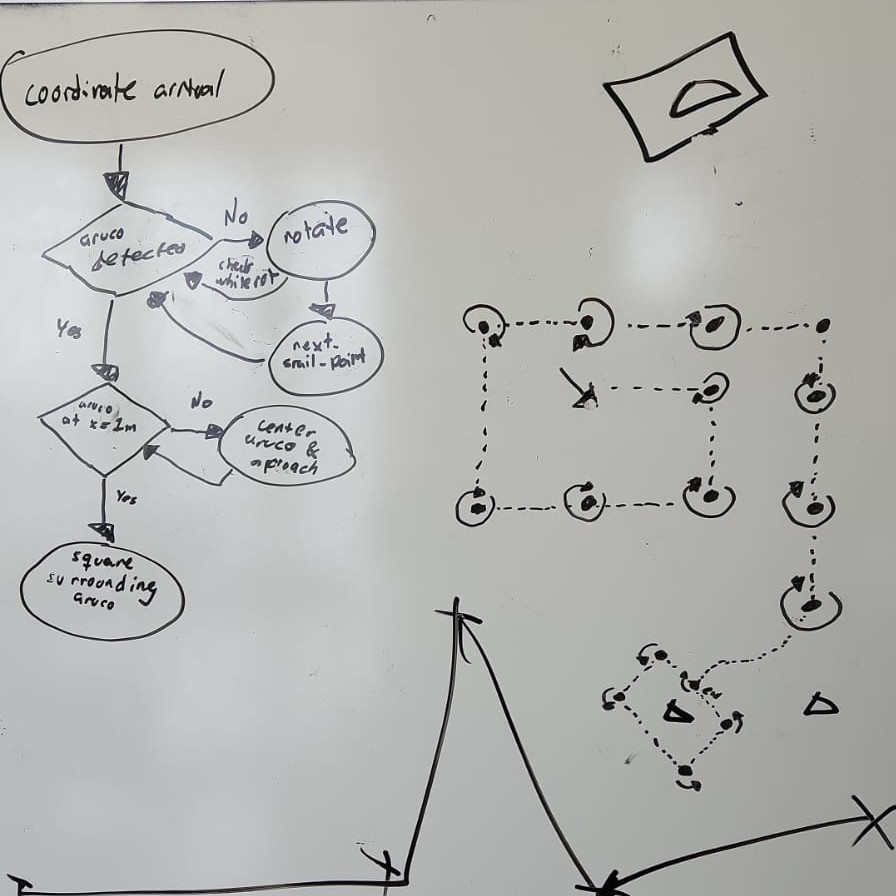 coordinate arrival
aruco
detected
No
rotate
check
while rot
next-
snail-point
Yes
aruco
at x=1m
No
center
aruco &
aproach
Yes
square
surrounding
aruco